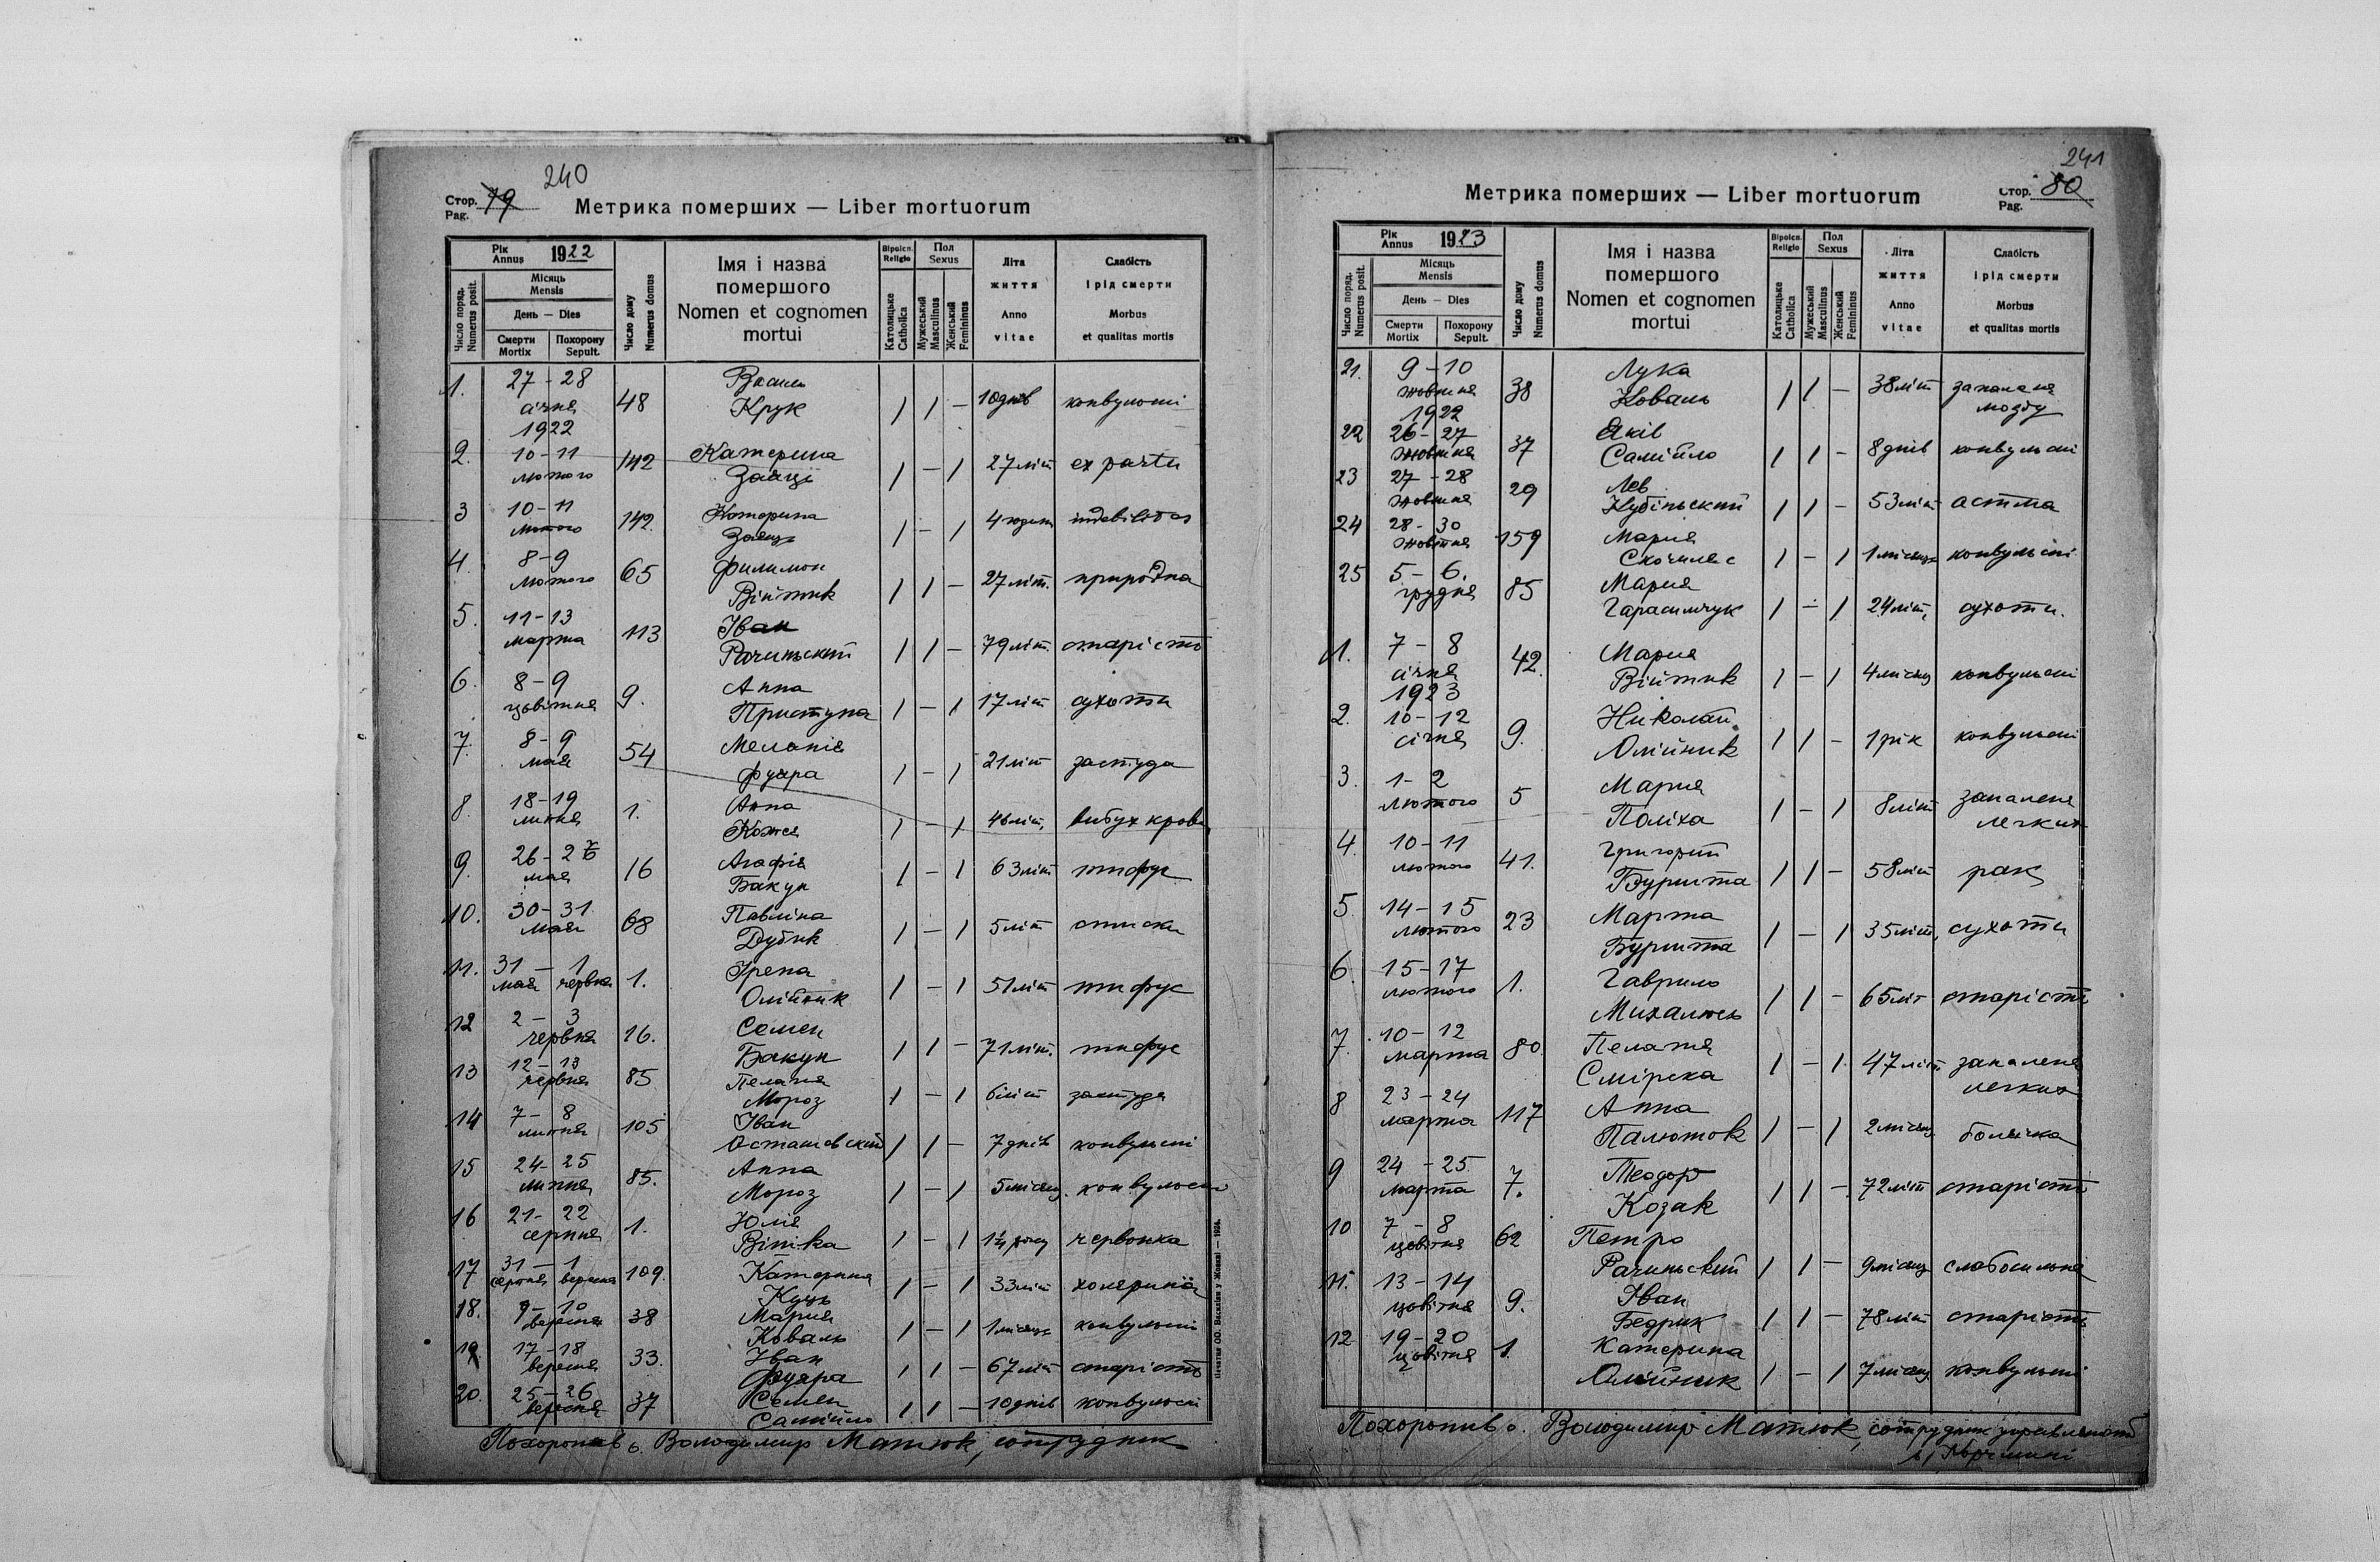 240
Стор. 79
Pag.
Метрика померших — Liber mortuorum
Рік
Annus 1922
Місяць
Mensis
День — Dies
Смерти
Mortix
Похорону
Sepult.
Число поряд.
Numerus posit.
Число дому
Numerus domus
Імя і назва
помершого
Nomen et cognomen
mortui
Віроісп.
Religio
Католицьке
Catholica
Пол
Sexus
Мужеський
Masculinus
Женський
Femininus
Літа
життя
Anno
vitae
Слабість
і рід смерти
Morbus
et qualitas mortis
1. 27-28 січня 1922 48 Василь Крук 1 1 — 10 днів конвульсиі
2. 10-11 лютого 142 Катерина Заяць 1 — 1 27 літ ex partu
3 10-11 лютого 142 Катерина Заяць 1 — 1 4 годин indebilitas
4. 8-9 лютого 65 Филимон Війтик 1 1 — 27 літ. природна
5. 11-13 марта 113 Іван Рачинський 1 1 — 79 літ. старість
6. 8-9 цьвітня 9. Анна Приступа 1 — 1 17 літ сухоти
7. 8-9 мая 54 Меланія Фуяра 1 — 1 21 літ застуда
8. 18-19 липня 1. Анна Кожья 1 — 1 46 літ, вибух крови
9. 26-27 мая 16 Агафія Бакун 1 — 1 63 літ тифус
10. 30-31 мая 68 Павліна Дубик 1 — 1 5 літ стиски
11. 31 — 1 мая червня 1. Ірена Олійник 1 — 1 51 літ тифус
12 2-3 червня 16. Семен Бакун 1 1 — 71 літ. тифус
13 12-13 червня 85 Пелагія Мороз 1 — 1 6 літ застуда
14 7-8 липня 105 Іван Осташевский 1 1 — 7 днів конвульсиі
15 24-25 липня 85. Анна Мороз 1 — 1 5 місяц. конвульсиі
16 21-22 серпня 1. Юлія 1 — 1 1¼ року червонка
17 31 — 1 серпня вересня 109. Катерина Куць 1 — 1 33 літ холерина
18. 9-10 вересня 38 Мария Коваль 1 — 1 1 місяць конвульсиі
19 17-18 вересня 33. Іван Фуяра 1 1 — 67 літ старість
20. 25-26 вересня 37 Семен Самійло 1 1 — 10 днів конвульсиі
Похоронив о. Володимир Матюк, сотрудник
241
Стор. 80
Pag.
Метрика померших — Liber mortuorum
Рік
Annus 1923
Місяць
Mensis
День — Dies
Смерти
Mortix
Похорону
Sepult.
Число поряд.
Numerus posit.
Число дому
Numerus domus
Імя і назва
помершого
Nomen et cognomen
mortui
Віроісп.
Religio
Католицьке
Catholica
Пол
Sexus
Мужеський
Masculinus
Женський
Femininus
Літа
життя
Anno
vitae
Слабість
і рід смерти
Morbus
et qualitas mortis
21. 9-10 жовтня 1922 38 Лука Коваль 1 1 — 38 літ запаленя мозгу
22 26-27 жовтня 37 Яків Самійло 1 1 — 8 днів конвульсиі
23 27-28 жовтня 29 Лев Кубіньский 1 1 — 53 літ астма
24 28-30 жовтня 159 Мария Скочиляс 1 — 1 1 місяць конвульсиі
25 5-6. грудня 85 Мария Гарасимчук 1 — 1 24 літ, сухоти.
1. 7-8 січня 1923 42. Мария Війтик 1 — 1 4 місяц конвульсиі
2. 10-12 січня 9. Николай Олійник 1 1 — 1 рік конвульсиі
3. 1-2 лютого 5 Мария Поліха 1 — 1 8 літ запаленя легких
4. 10-11 лютого 41. Григорий Буришта 1 1 — 58 літ рак
5. 14-15 лютого 23 Марта Буришта 1 — 1 35 літ, сухоти
6. 15-17 лютого 1. Гаврило Михалюсь 1 1 — 65 літ старість
7. 10-12 марта 80. Пелагія Смірека 1 — 1 47 літ запаленя легких
8 23-24 марта 117 Анна Палюток 1 — 1 2 місяц болячка
9 24-25 марта 7. Теодор Козак 1 1 — 72 літ старість
10 7-8 цьвітня 62 Петро Рачиньский 1 1 — 9 місяц слабосильна
11. 13-14 цьвітня 9. Іван Бедрик 1 1 — 78 літ старість
12 19-20 цьвітня 1. Катерина Олійник 1 — 1 7 місяц конвульсиі
Похоронив о. Володимир Матюк, сотрудник